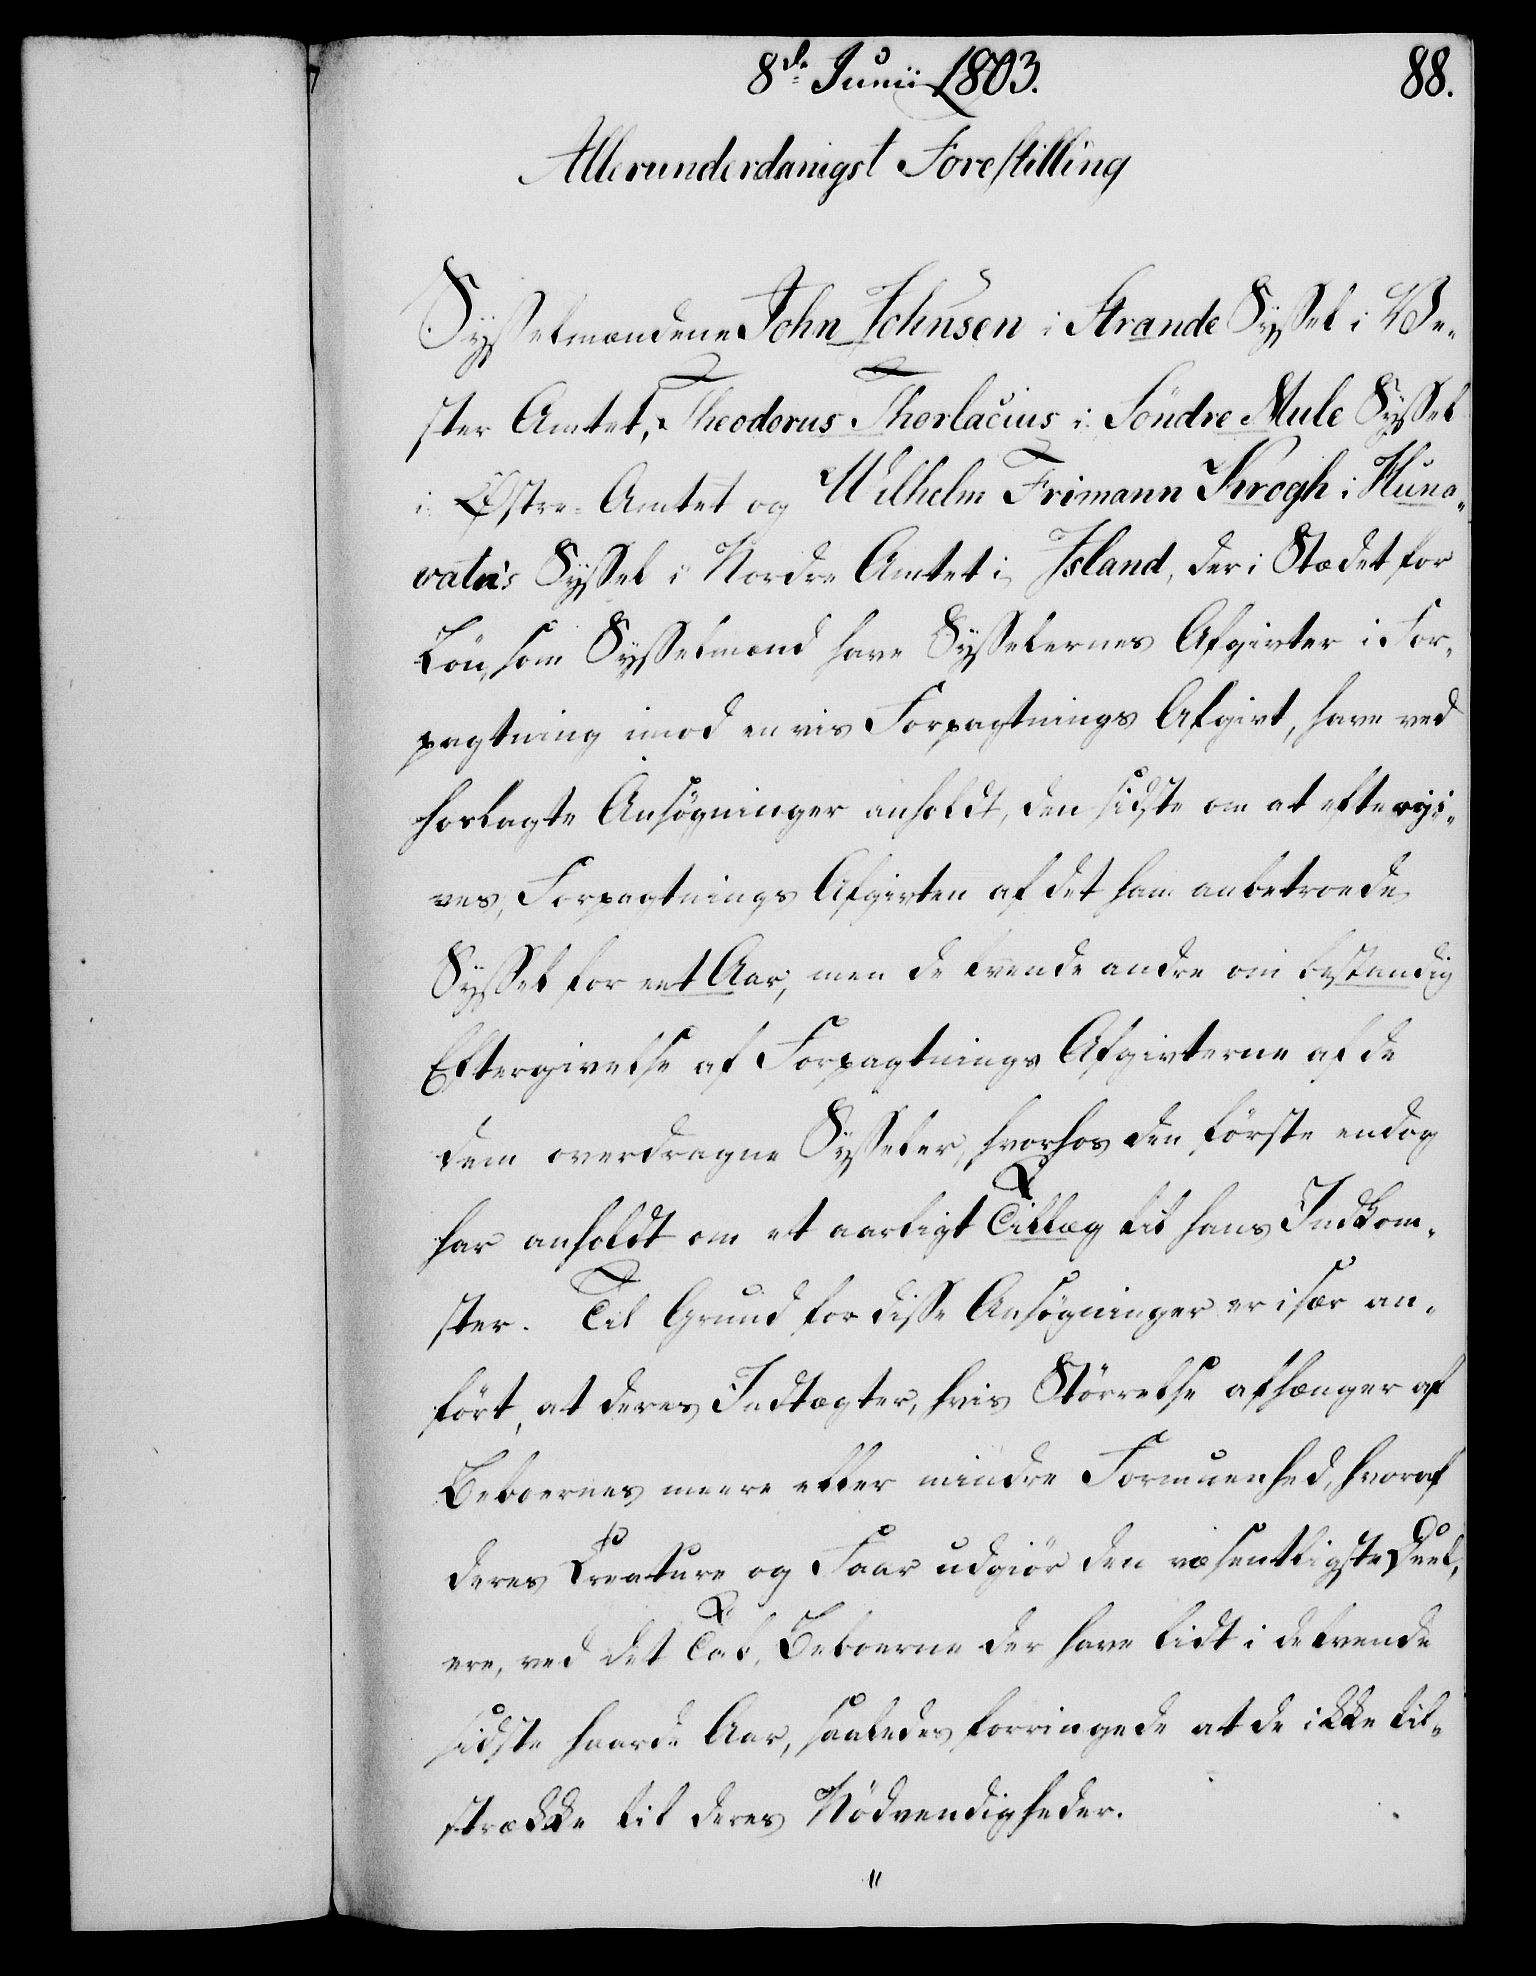 8de Junii 1803.
88.
Allerunderdanigst Forestilling
Sysselmændene John Johnsen i Strande Syssel i Ve-
ster Amtet, Theodorus Thorlacius i Söndre Mule Syssel
i Østre-Amtet og Wilhelm Frimann Krogh i Huna-
vatn's Syssel i Nordre Amtet i Island, der i Stædet for
Lön, som Sysselmænd have Sysselernes Afgivter i For-
pagtning imod en vis Forpagtnings Afgivt, have ved
hoslagte Ansögninger anholdt, den sidste om at eftergi-
ves, Forpagtnings Afgivten af det ham anbetroede
Syssel for eet Aar, men de tvende andre om bestandig
Eftergivelse af Forpagtnings Afgivterne af de
dem overdragne Sysseler, hvorhos den förste endog
har anholdt om et aarligt Tillæg til hans Indkom-
ster. Til Grund for disse Ansögninger er især an-
fört, at deres Indtægter, hvis Störrelse afhænger af
Beboernes meere eller mindre Formuenhed, hvoraf
deres Creature og Faar udgiör den væsentligste Deel,
ere, ved det Tab, Beboerne der have lidt i de tvende
sidste haarde Aar, saaledes forringede at de ikke til-
strække til deres Nödvendigheder.
"